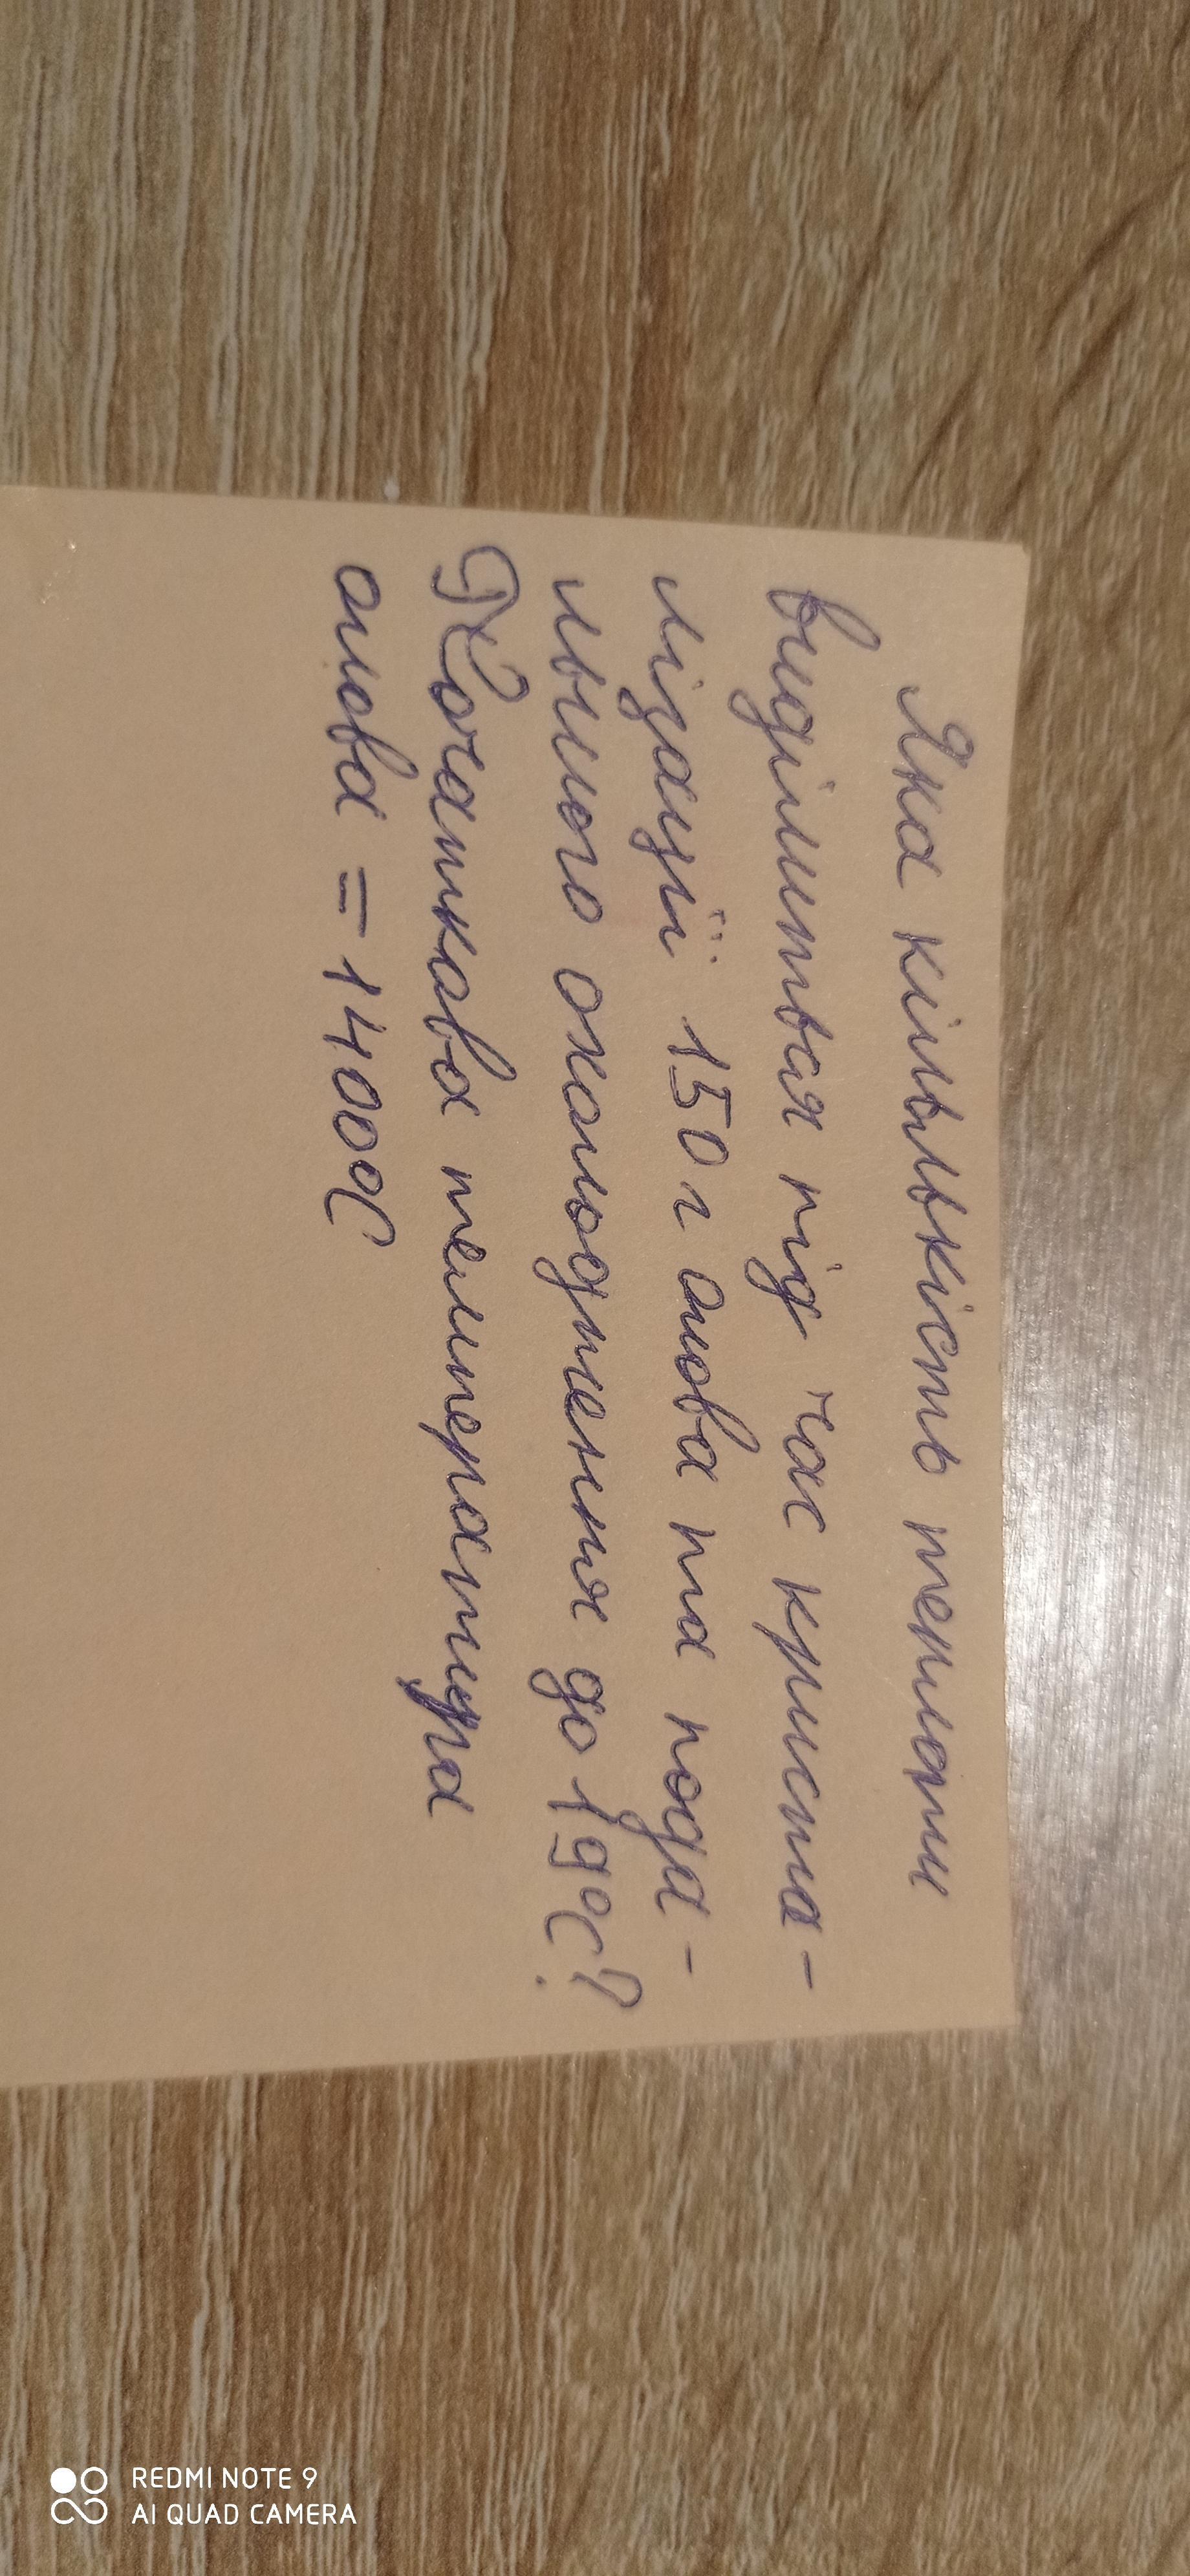 Яка кількість теплоти
виділиться під час криста-
лізації 150 г олова та пода-
льшого охолодження до 19°С?
Початкова температура
олова = 1400С
REDMI NOTE 9
AI QUAD CAMERA